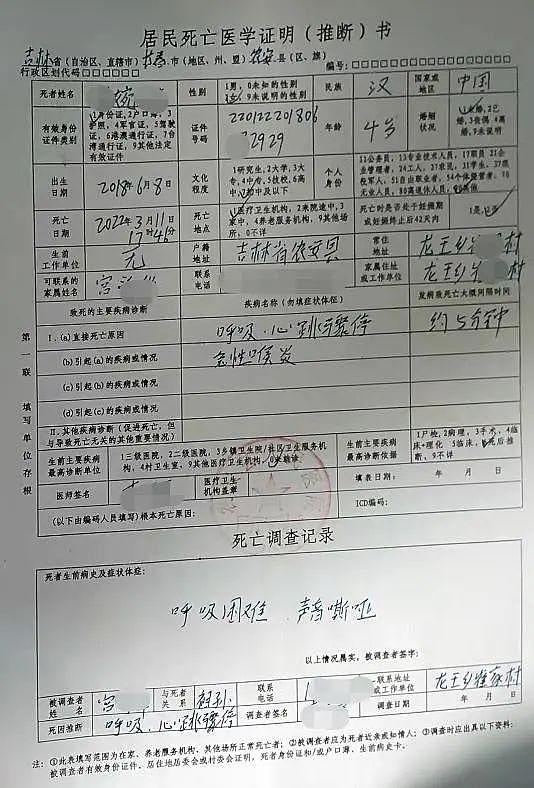 居民死亡医学证明(推断)书
吉林省(自治区、直辖市) 长春市(地区、州、盟) 农安县(区、旗)
行政区划代码□□□□□□ 编号:
死者姓名 性别 1男,0未知的性别 9未说明的性别 民族 汉 国家或地区 中国
有效身份证件类别 1身份证,2户口簿,3护照,4军官证,5驾驶证,6港澳通行证,7台湾通行证,9其他法定有效证件 证件号码 220122201806 2929 年龄 4岁 婚姻状况 1未婚,2已婚,3丧偶,4离婚,9未说明
出生日期 2018年6月8日 文化程度 1研究生,2大学,3大专,4中专,5技校,6高中,7初中及以下 个人身份 11公务员,13专业技术人员,17职员,21企业管理者,24工人,27农民,31学生,37现役军人,51自由职业者,54个体经营者,70无业人员,80离退休人员,90其他
死亡日期 2022年3月11日 17时46分 死亡地点 1医疗卫生机构,2来院途中,3家中,4养老服务机构,9其他场所,0不详 死亡时是否处于妊娠期或妊娠终止后42天内 1是,2否
生前工作单位 无 户籍地址 吉林省农安县 常住地址 龙王乡 村
可联系的家属姓名 宫 联系电话 家属住址或工作单位 龙王乡 村
致死的主要疾病诊断 疾病名称(勿填症状体征) 发病致死亡大概间隔时间
第一联 填写单位存根
I.(a)直接死亡原因 呼吸.心跳骤停 约5分钟
(b)引起(a)的疾病或情况 急性喉炎
(c)引起(b)的疾病或情况
(d)引起(c)的疾病或情况
II.其他疾病诊断(促进死亡,但与导致死亡无关的其他重要情况)
生前主要疾病最高诊断单位 1三级医院,2二级医院,3乡镇卫生院/社区卫生服务机构,4村卫生室,9其他医疗卫生机构,0未就诊 生前主要疾病最高诊断依据 1尸检,2病理,3手术,4临床+理化 5临床,6死后推断,9不详
医师签名 医疗卫生机构盖章 填表日期: 年 月 日
(以下由编码人员填写)根本死亡原因: ICD编码:
死亡调查记录
死者生前病史及症状体征:
呼吸困难 声音嘶哑
以上情况属实,被调查者签字:
被调查者姓名 宫 与死者关系 祖孙 联系电话 联系地址或工作单位 龙王乡崔家村
死因推断 呼吸.心跳骤停 调查者签名 调查日期 年 月 日
注:①此表填写范围为在家、养老服务机构、其他场所正常死亡者;②被调查者应为死者近亲或知情人;③调查时应出具以下资料:
被调查者有效身份证件、居住地居委会或村委会证明,死者身份证和/或户口簿、生前病史卡。